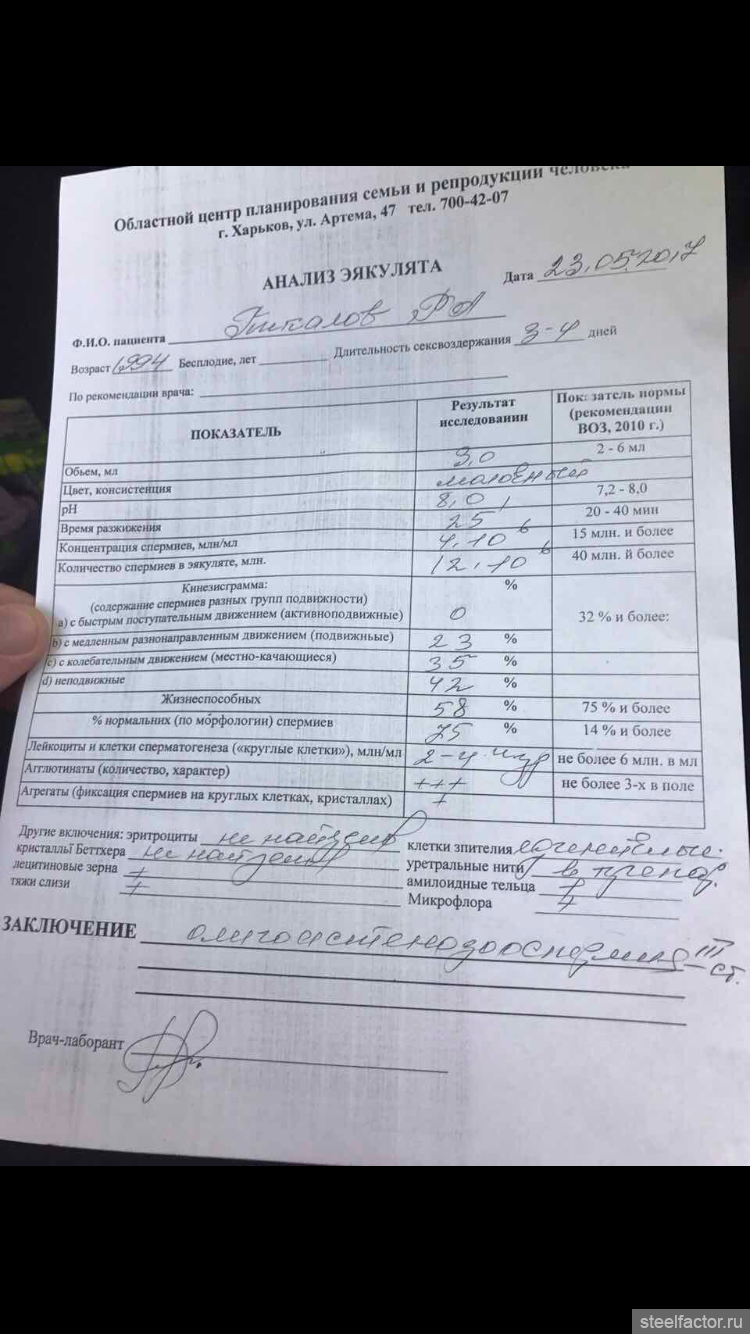 Областной центр планирования семьи и репродукции человека
г. Харьков, ул. Артема, 47 тел. 700-42-07
АНАЛИЗ ЭЯКУЛЯТА Дата 23.05.2017
Ф.И.О. пациента РА
Возраст 1994 Бесплодие, лет Длительность сексвоздержания 3-4 дней
По рекомендации врача:
ПОКАЗАТЕЛЬ Результат исследовании Показатель нормы (рекомендации ВОЗ, 2010 г.)
Обьем, мл 3,0 2 - 6 мл
Цвет, консистенция молочный
pH 8,0 7,2 - 8,0
Время разжижения 25' 20 - 40 мин
Концентрация спермиев, млн/мл 4.10⁶ 15 млн. и более
Количество спермиев в эякуляте, млн. 12.10⁶ 40 млн. й более
Кинезисграмма: %
(содержание спермиев разных групп подвижности)
а) с быстрым поступательным движением (активноподвижные) 0 32 % и более:
b) с медленным разнонаправленным движением (подвижньые) 23 %
c) с колебательным движением (местно-качающиеся) 35 %
d) неподвижные 42 %
Жизнеспособных 58 % 75 % и более
% нормальних (по морфологии) спермиев 75 % 14 % и более
Лейкоциты и клетки сперматогенеза («круглые клетки»), млн/мл 2-4 не более 6 млн. в мл
Агглютинаты (количество, характер) +++ не более 3-х в поле
Агрегаты (фиксация спермиев на круглых клетках, кристаллах) +
Другие включения: эритроциты не найдены клетки зпителия единичные.
кристаллы Беттхера не найдены уретральные нити в препар.
лецитиновые зерна + амилоидные тельца +
тяжи слизи + Микрофлора +
ЗАКЛЮЧЕНИЕ олигоастенозооспермия III ст.
Врач-лаборант
steelfactor.ru